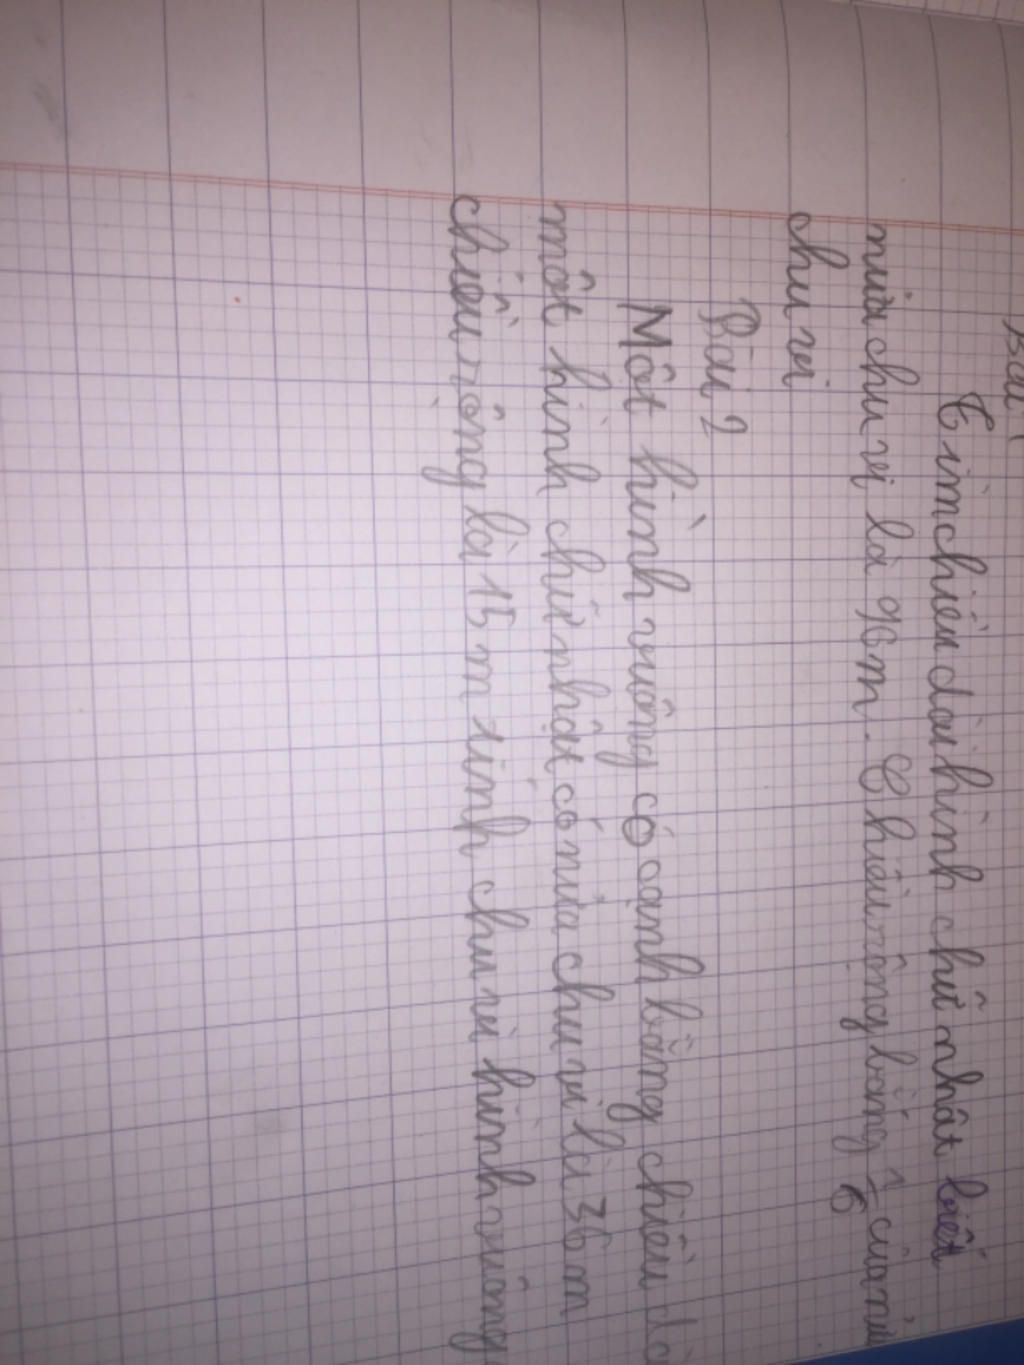 Bài 1
Tìm chiều dài hình chữ nhật biết
nửa chu vi là 96m. Chiều rộng bằng 1/6 của nửa
chu vi
Bài 2
Một hình vuông có cạnh bằng chiều dà
một hình chữ nhật có nửa chu vi là 36 m
chiều rộng là 15 m tính chu vi hình vuông